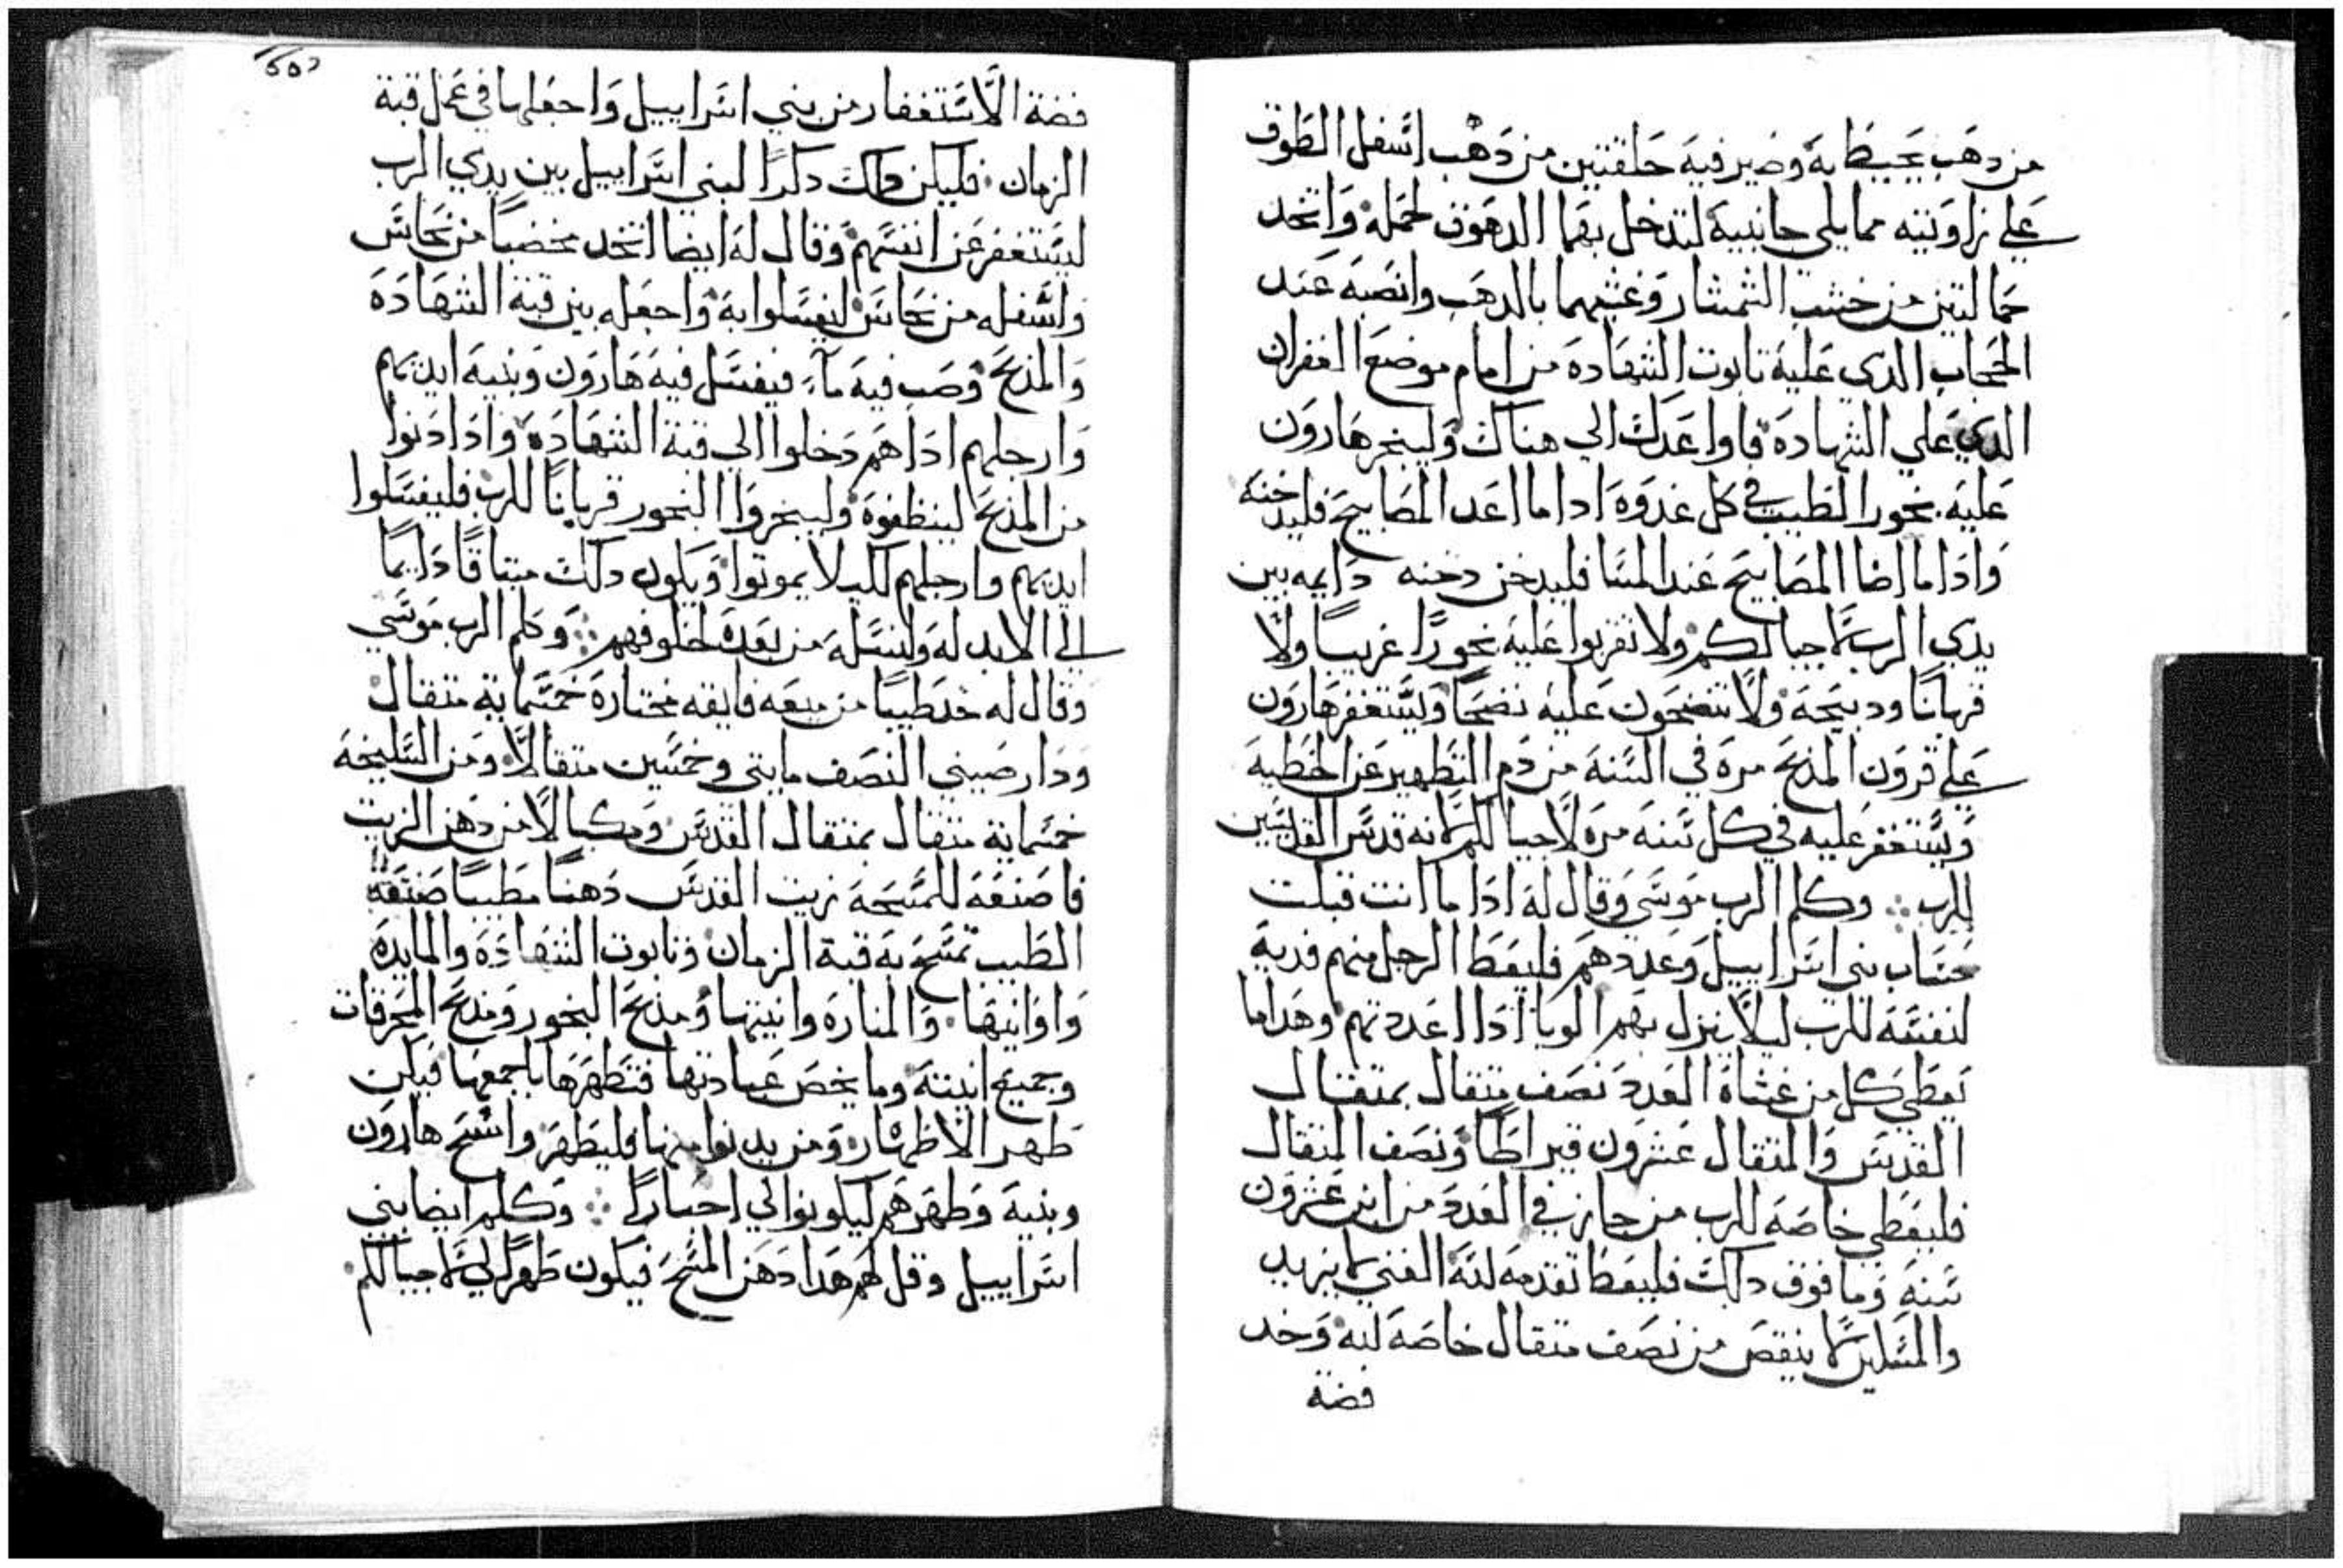 من دهب يحيط به وصير فيه حلقتين من دهب اسفل الطوق
علي زاويتيه مما يلي جانبيه لتدخل بهما الدهوق لحمله واتخد
حمالتين من خشب الشمشار وغشيهما بالدهب وانصبه عند
الحجاب الدي عليه تابوت الشهاده من امام موضع الغفران
الدي علي الشهاده فاواعدك الي هناك وليبخر هارون
عليه بخور الطيب في كل غدوه ادا ما اعد المصابيح فليدخنه
وادا ما اضا المصابيح عند المسا فليدخن دخنه دايمه بين
يدي الرب لاحيالكم ولا تقربوا عليه بخورًا غريبًا ولا
قربانًا ودبيحه ولا تنضحون عليه نضحًا ويستغفر هارون
علي قرون المدبح مره في السنه من دم التطهير عن الخطيه
ويستغفر عليه في كل سنه مره لاحيالكم لانه قدس القديسين
للرب وكلم الرب موسي وقال له ادا ما انت قبلت
حساب بني اسراييل وعددهم فليعط الرجل منهم فديه
لنفسه للرب ليلا ينزل بهم الوبا ادا اعددتهم وهدا ما
يعطي كل من غشاه العدد نصف متقال بمتقال
القديس والمتقال عشرون قيراطًا ونصف المتقال
فليعطي خاصه للرب من جاز في العدد من ابن عشرون
سنه وما فوق دلك فليعط تقدمه لله الغني لا يزيد
والمسكين لا ينقص من نصف متقال خاصه لله وخد
فضة
فضة الاستغفار من بني اسراييل واجعلها في عمل قبة
الزمان فليكن دلك دكرًا لبني اسراييل بين يدي الرب
ليستغفر عن انفسهم وقال له ايضا اتخد مخضبًا من نحاس
واسفله من نحاس ليغسلوا به واجعله بين قبة الشهاده
والمدبح وصب فيه مآء فيغسل فيه هارون وبنيه ايديهم
وارجلهم ادا هم دخلوا الي قبة الشهاده وادا دنوا
من المدبح لينظفوه وليبخروا البخور قربانًا للرب فليغسلوا
ايديهم وارجلهم لكيلا يموتوا ويكون دلك ميتاقًا دايمًا
الي الابد له ولنسله من بعده لخلوفهم وكلم الرب موسي
وقال له خد طيبًا من ميعه فايقه مختاره خمسماية متقال
ودارصيني النصف مايتي وخمسين متقالًا ومن السليخه
خمسماية متقال بمتقال القدس ومكيالًا من دهن الزيت
فاصنعه للمسحه زيت القدس دهنًا مطيبًا صنعة
الطيب تمسح به قبة الزمان وتابوت الشهاده والمايده
واوانيها والمناره وانيتها ومدبح البخور ومدبح المحرقات
وجميع انيته وما يخص عبادتها فتطهرها باجمعها فيكن
طهر الاطهار ومن يدنوا منها فليطهر وامسح هارون
وبنيه وطهرهم ليكونوا لي احبارًا وكلم ايضا بني
اسراييل وقل لهم هدا دهن المسح فيكون طهرًا لي لاحيالكم